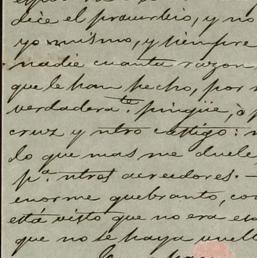 dice el proverbio, y no
yo mismo, y siempre
nadie cuanta razon
que le han hecho, por
verdadera.te pingüe, ó
cruz y ntro castigo:
lo que mas me duele,
pa. ntros acreedores.—
enorme quebranto, con
está visto que no era
que no se haya vuelt